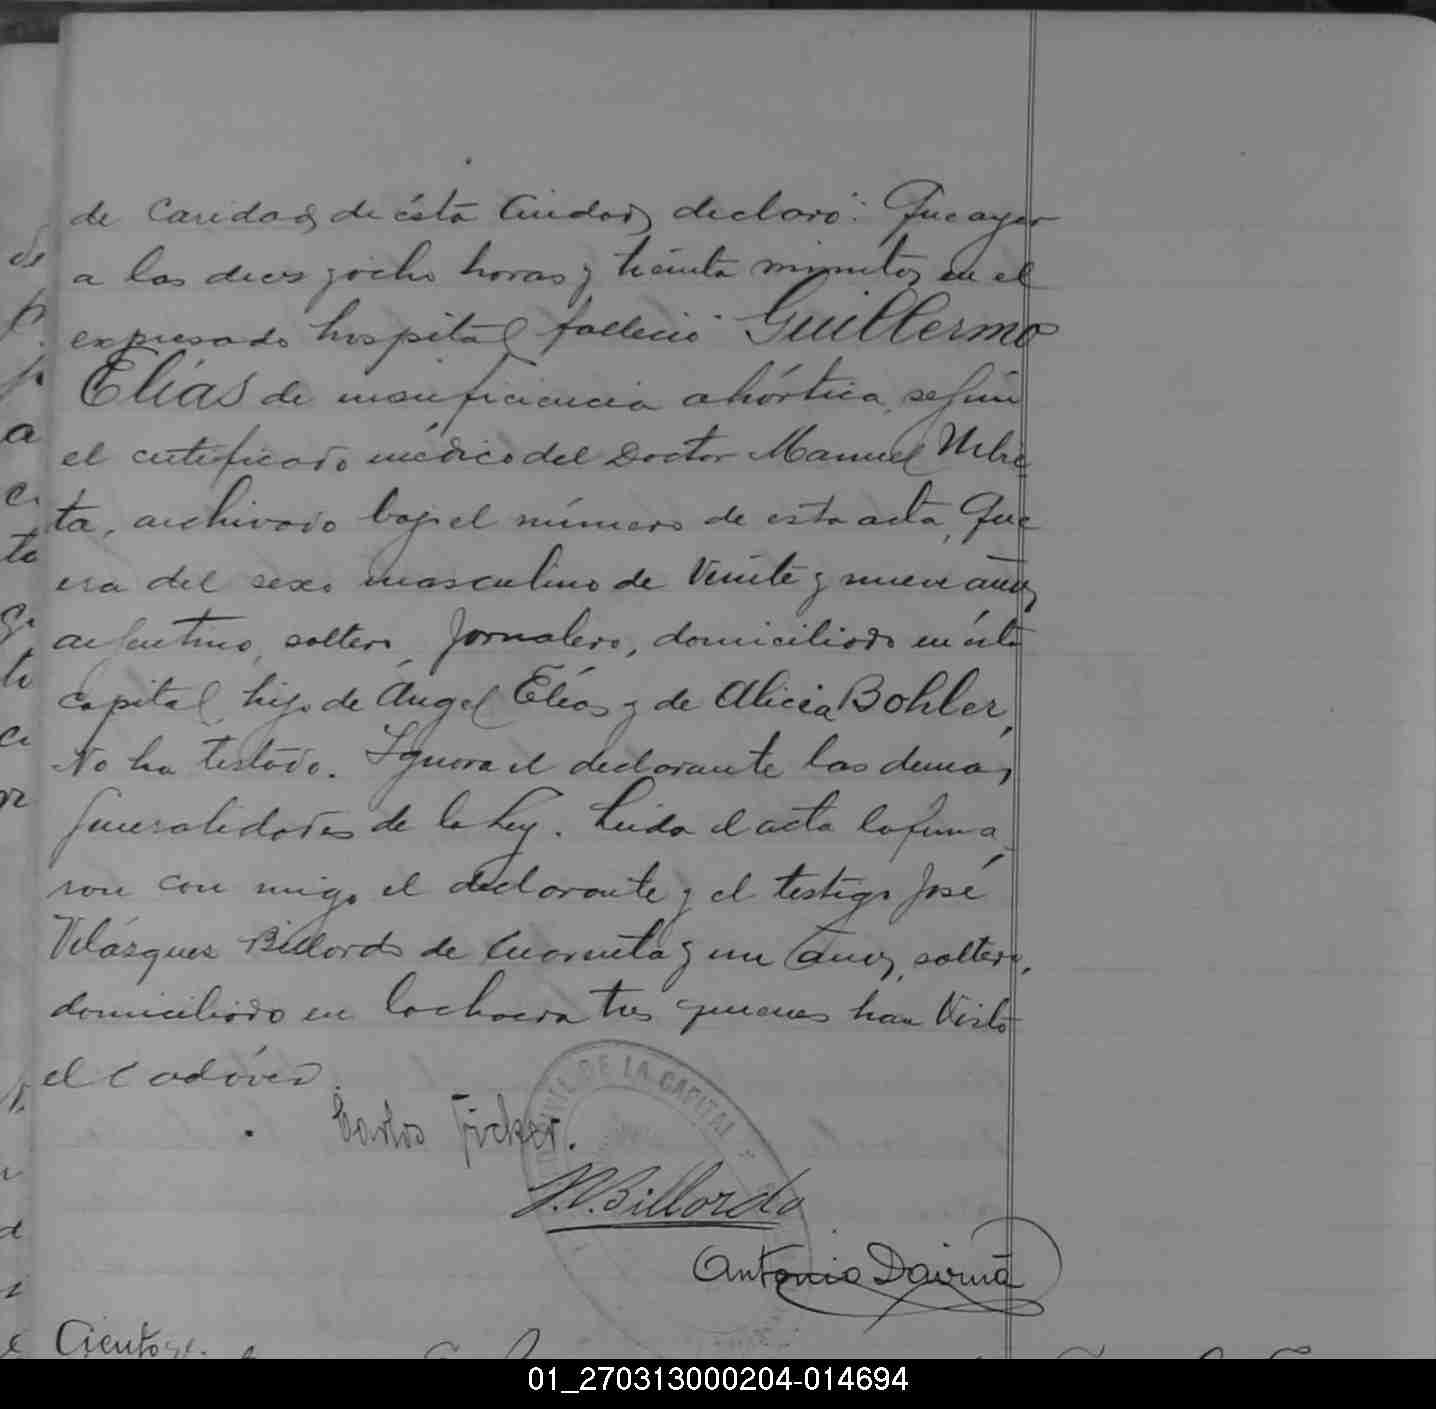 de Caridad, de ésta Ciudad, declaró: Que ayer
a las diez y ocho horas y treinta minutos, en el
expresado hospital falleció Guillermo
Elías de insuficiencia ahórtica, según
el certificado médico del Doctor Manuel Urbie
ta, archivado bajo el número de esta acta, Que
era del sexo masculino de veinte y nueve años,
argentino, soltero, Jornalero, domiciliado en ésta
capital, hijo de Ángel Elías y de Alicia Bohler,
No ha testado. Ignora el declarante las demás
generalidades de la Ley. Leida el acta la firma
ron con migo el declarante y el testigo José
Velásquez Billordo de cuarenta y un años, soltero,
domiciliado en la chacra tres quienes han visto
el cadáver.
Carlos Ficker.
J. V. Billordo
Antonio
CIVIL DE LA CAPITAL
Ciento
01_270313000204-014694